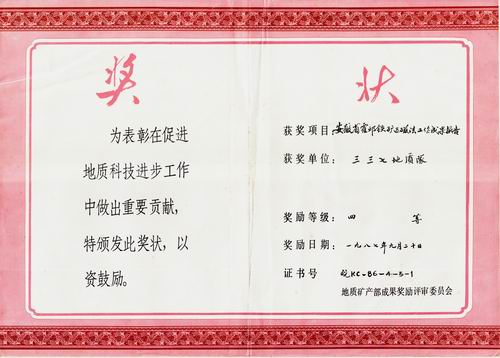 奖状
为表彰在促进
地质科技进步工作
中做出重要贡献，
特颁发此奖状，以
资鼓励。
获奖项目：安徽省霍邱铁矿区磁法工作成果报告
获奖单位：三三七地质队
奖励等级：四等
奖励日期：一九八七年九月二十日
证书号 皖KC-86-4-5-1
地质矿产部成果奖励评审委员会